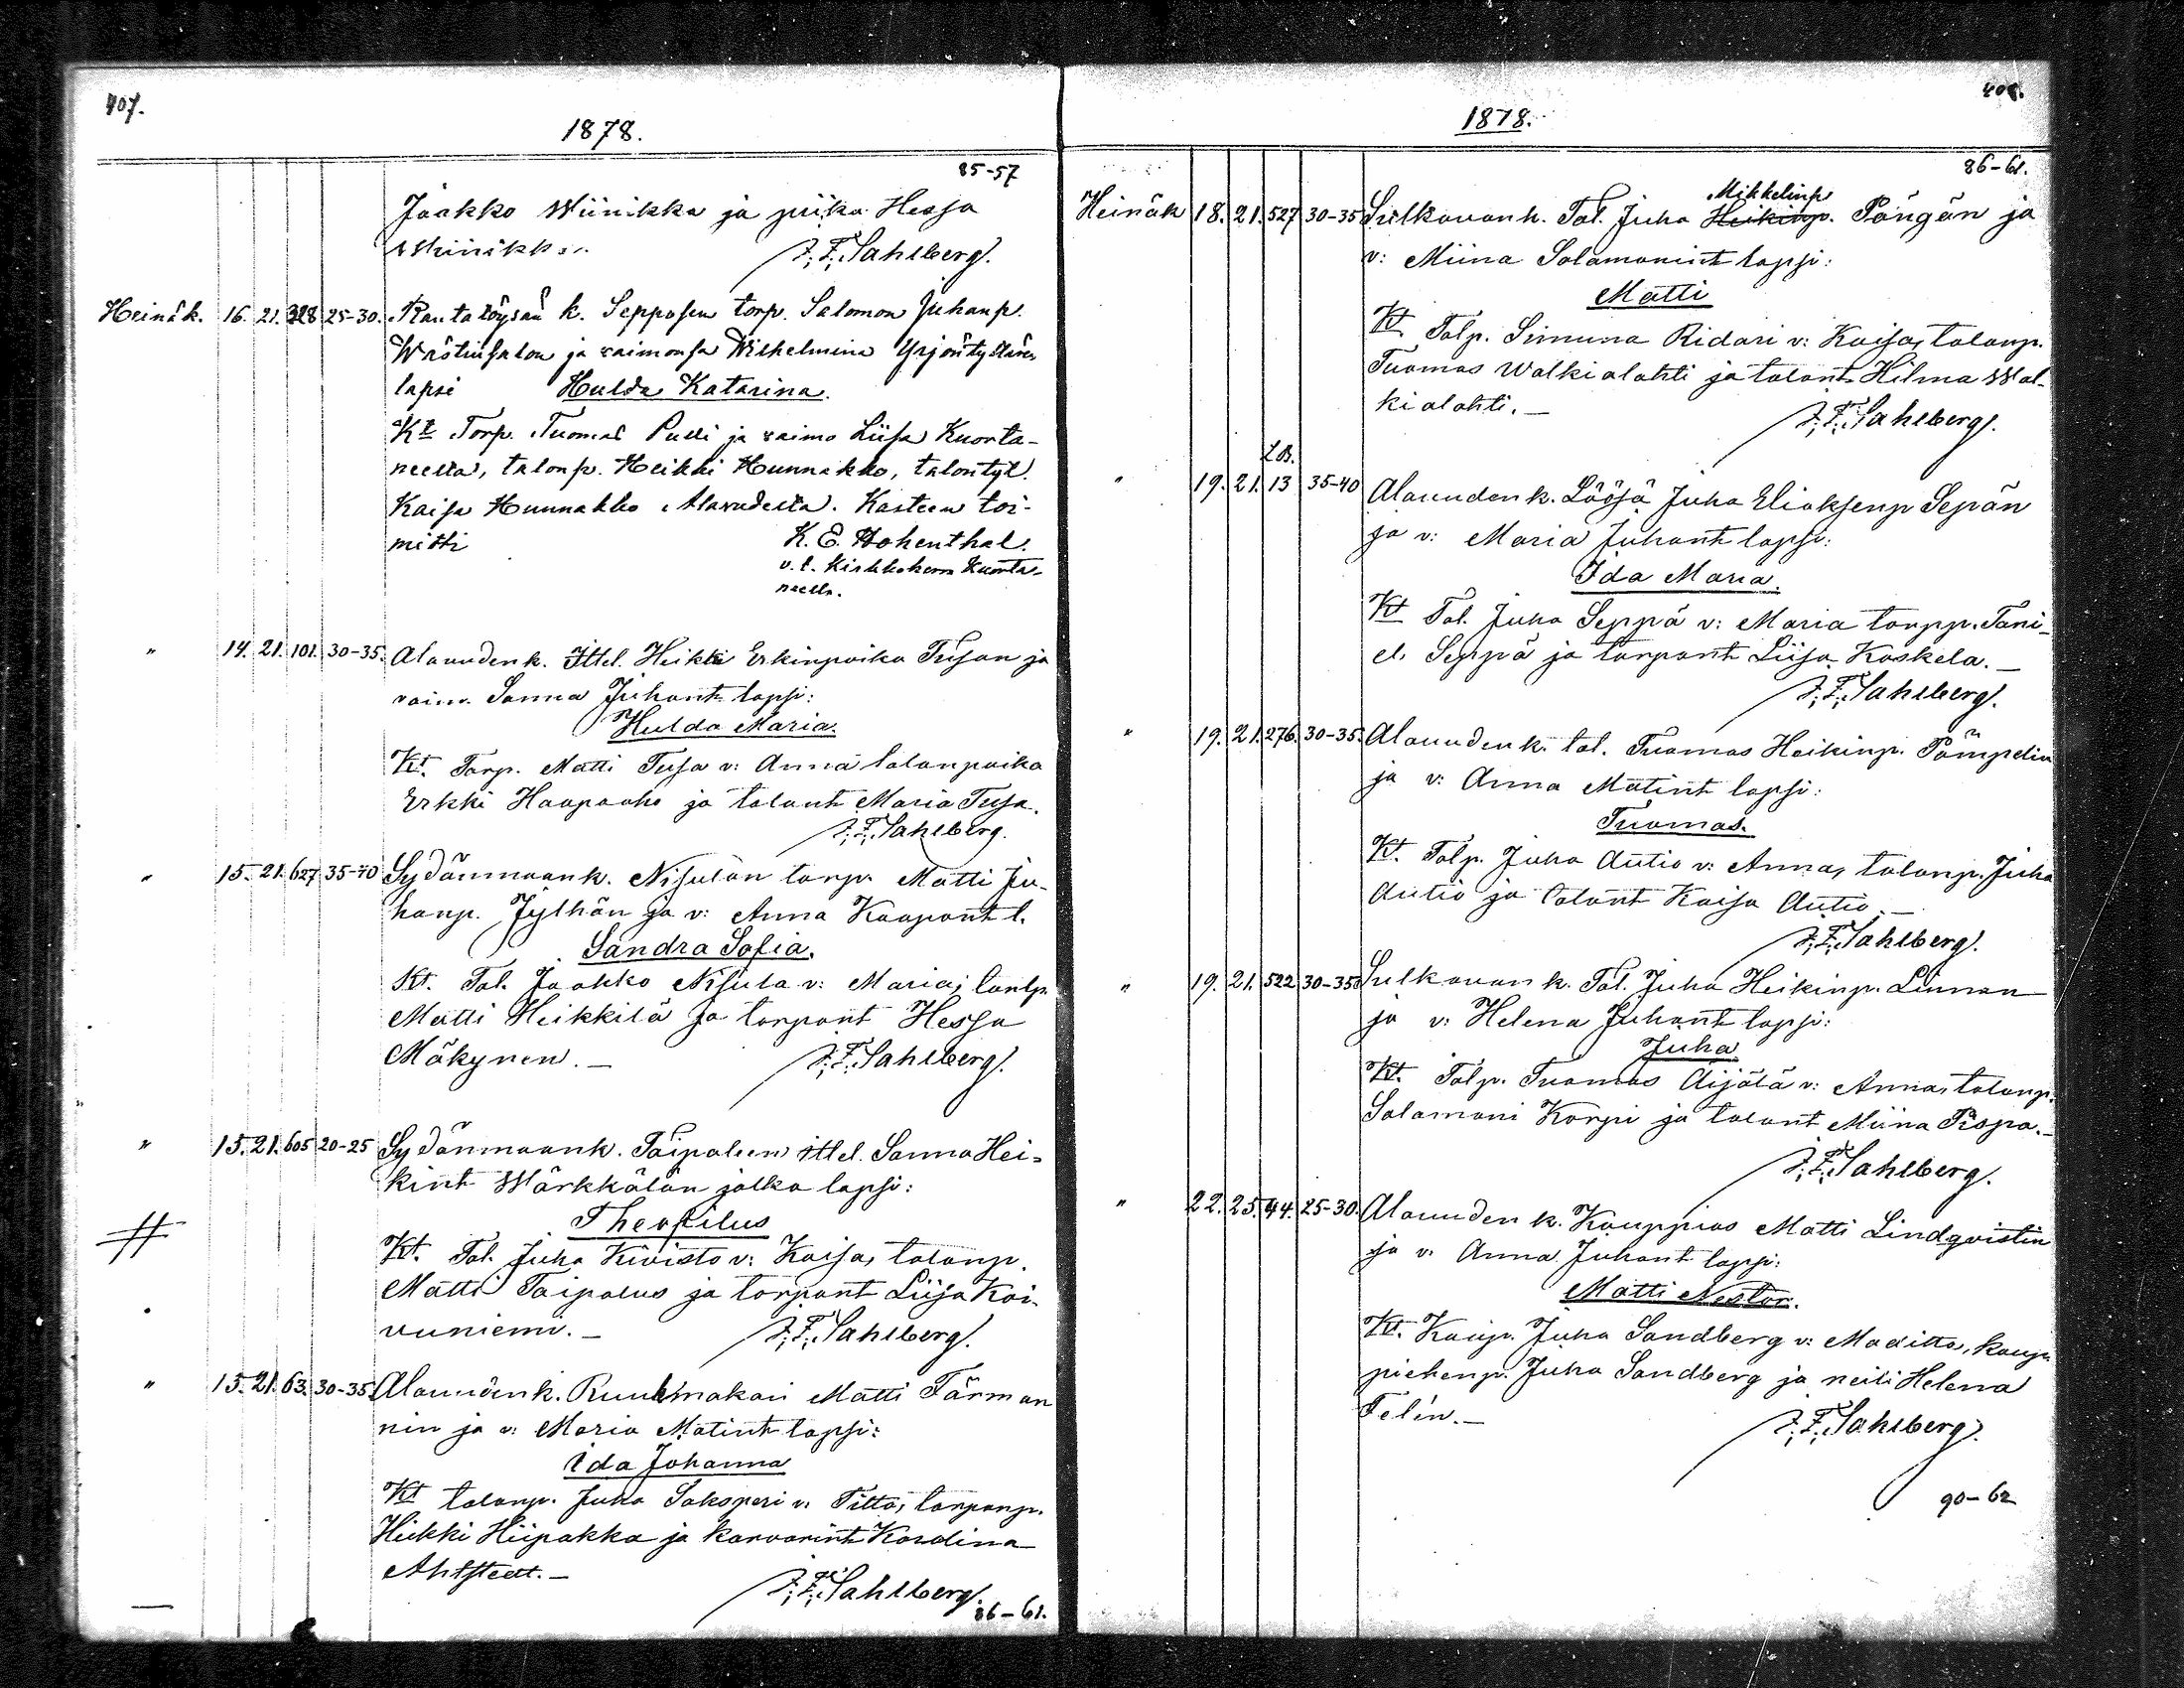 407.
1878.
85-57
Jaakko Wiinikka ja piika Hessa
Wiinikka.
J. F. Sahlberg.
Heinäk. 16. 21. 328 25-30. Rantatöysän k. Sepposen torp. Salomon Juhanp.
Wrötinsalon ja vaimonsa Wilhelmina Yrjöntyttären
lapsi Hulda Katarina.
Kt Torp. Tuomas Pulli ja vaimo Liisa Kuorta-
neelta, talonp. Heikki Hunnakko, talontyt.
Kaisa Hunnakko Alavudelta. Kasteen toi-
mitti K. E. Hohenthal.
v. t. Kirkkoherra Kuorta-
neella.
" 14. 21. 101. 30-35. Alauuden k. Ittel. Heikki Erkinpoika Tusan ja
vaim. Sanna Juhant lapsi:
Hulda Maria.
Kt. Torp. Matti Tusa v: Anna talonpoika
Erkki Haapaaho ja talont Maria Tusa.
J. F. Sahlberg.
" 15. 21. 627 35-40 Sydänmaank. Nisulan torp. Matti Ju-
hanp. Jylhän ja v: Anna Kaapont l.
Sandra Sofia.
Kt. Tal. Jaakko Nisula v: Maria,
Matti Heikkilä ja torpant Hessa
Mäkynen. —
J. F. Sahlberg.
" 15. 21. 605 20-25 Sydänmaank. Taipaleen ittel. Sanna Hei-
kint Wärkkälän jalka lapsi:
Theofilus
Kt. Tal. Juha Kiwisto v: Kaisa, talonp.
Matti Taipalus ja torpant Liisa Koi-
vuniemi. —
J. F. Sahlberg.
" 15. 21. 63. 30-35. Alauuden k. Ruukinmakari Matti Färman
nin ja v: Maria Matint lapsi:
Ida Johanna
Kt talonp. Juha Saksperi v. Titta, torpanp.
Heikki Hiipakka ja karvarint Karolina
Ahlstedt. —
J. F. Sahlberg.
86-61.
408.
1878.
86-61.
Mikkelinp
Heinäk 18. 21. 527 30-35 Sulkauan k. Tal. Juha Heikinp. Pängän ja
v: Miina Salamonint lapsi:
Matti
Kt. Talp. Simuna Ridari v: Kaisa, talonp.
Tuomas Walkialahti ja talont Hilma Wal-
kialahti. —
J. F. Sahlberg.
LB.
" 19. 21. 13 35-40 Alauuden k. Lääjä Juha Eliaksenp Sepän
ja v: Maria Juhant lapsi:
Ida Maria.
Kt Tal. Juha Seppä v: Maria torpp. Tani-
el. Seppä ja torpant Liisa Koskela. —
J. F. Sahlberg.
" 19. 21. 276. 30-35. Alauuden k. tal. Tuomas Heikinp. Pämpelin
ja v: Anna Matint lapsi:
Tuomas.
Kt. Talp. Juha Autio v: Anna, talonp. Juha
Autio ja talont Kaisa Autio. —
J. F. Sahlberg.
" 19. 21. 522 30-35 Sulkauan k. Tal. Juha Heikinp. Linnan
ja v: Helena Juhant lapsi:
Juha
Kt. Talp. Tuomas Äijälä v: Anna, talonp.
Salamoni Korpi ja talont Miina Pispa. —
J. F. Sahlberg.
" 22. 25. 44. 25-30. Alauuden k. Kauppias Matti Lindqvistin
ja v. Anna Juhant lapsi:
Matti Nestor.
Kt. Kaup. Juha Sandberg v: Maditta, kaup
piehenp. Juha Sandberg ja neiti Helena
Felin. —
J. F. Sahlberg.
90-62